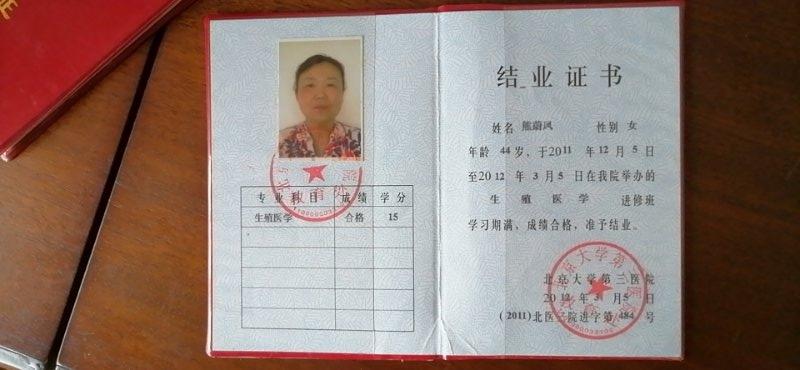 证
专业科目 成绩 学分
生殖医学 合格 15
结业证书
姓名 熊蔚凤 性别 女
年龄 44 岁，于2011 年 12 月 5 日
至2012 年 3 月 5 日在我院举办的
生殖医学 进修班
学习期满，成绩合格，准予结业。
北京大学第三医院
2012 年 3 月 5 日
(2011)北医三院进字第 484 号